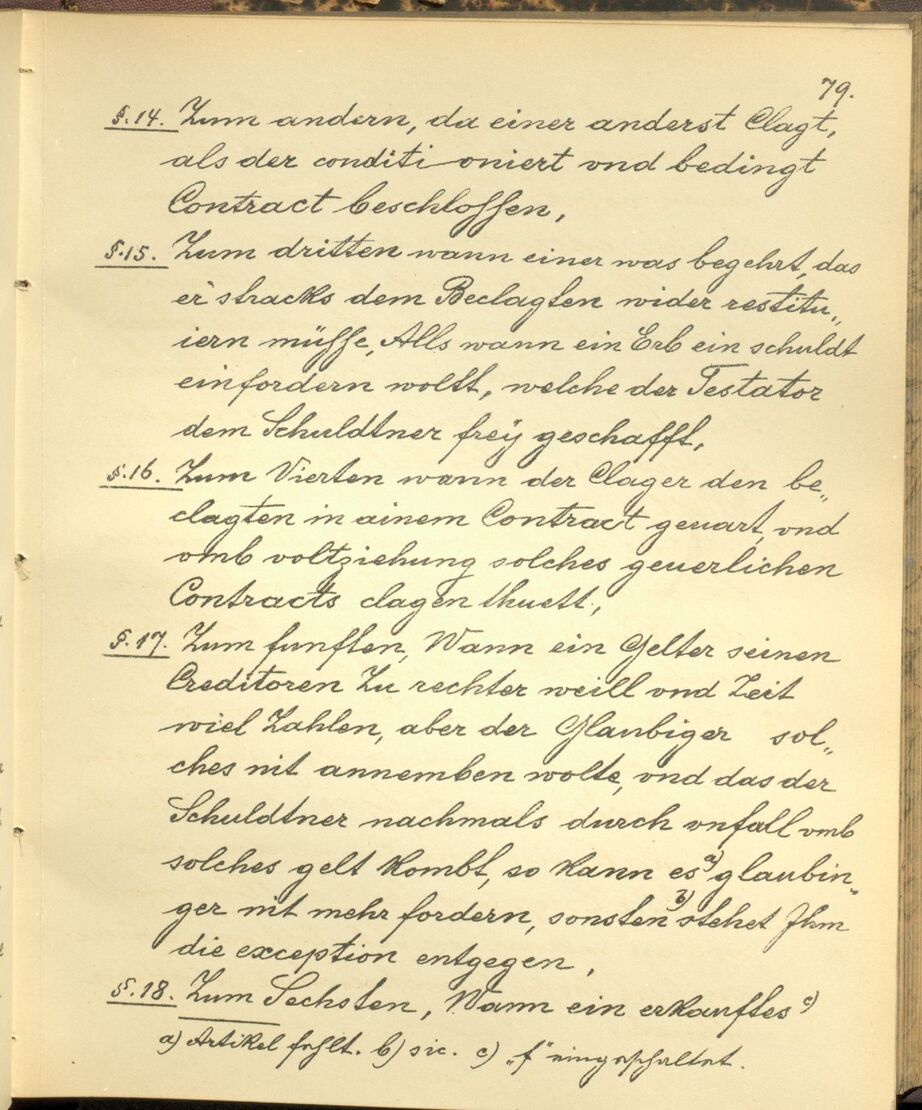 79.
§.14. Zum andern, da einer anderst Clagt,
als der conditi oniert vnd bedingt
Contract beschlossen,
§.15. Zum dritten wann einer was begehrt, das
er stracks dem Beclagten wider restitu„
iern müsse, Alls wann ein Erb ein schuldt
einfordern wollt, welche der Testator
dem Schuldtner freÿ geschafft,
§.16. Zum Vierten wann der Clager den be„
clagten in ainem Contract geuart, vnd
vmb voltziehung solches geuerlichen
Contracts clagen thuett,
§.17. Zum funften, Wann ein Gelter seinen
Creditoren Zu rechter weill vnd Zeit
wiel Zahlen, aber der Glaubiger sol„
ches nit annemben wolte, vnd das der
Schuldtner nachmals durch vnfall vmb
solches gelt kombt, so kann es a) glaubin„
ger nit mehr fordern, sonsten b) stehet Jhm
die exception entgegen,
§.18. Zum Sechsten, Wann ein erkauftes c)
a) Artikel fehlt. b) sic. c) „f“ eingeschaltet.